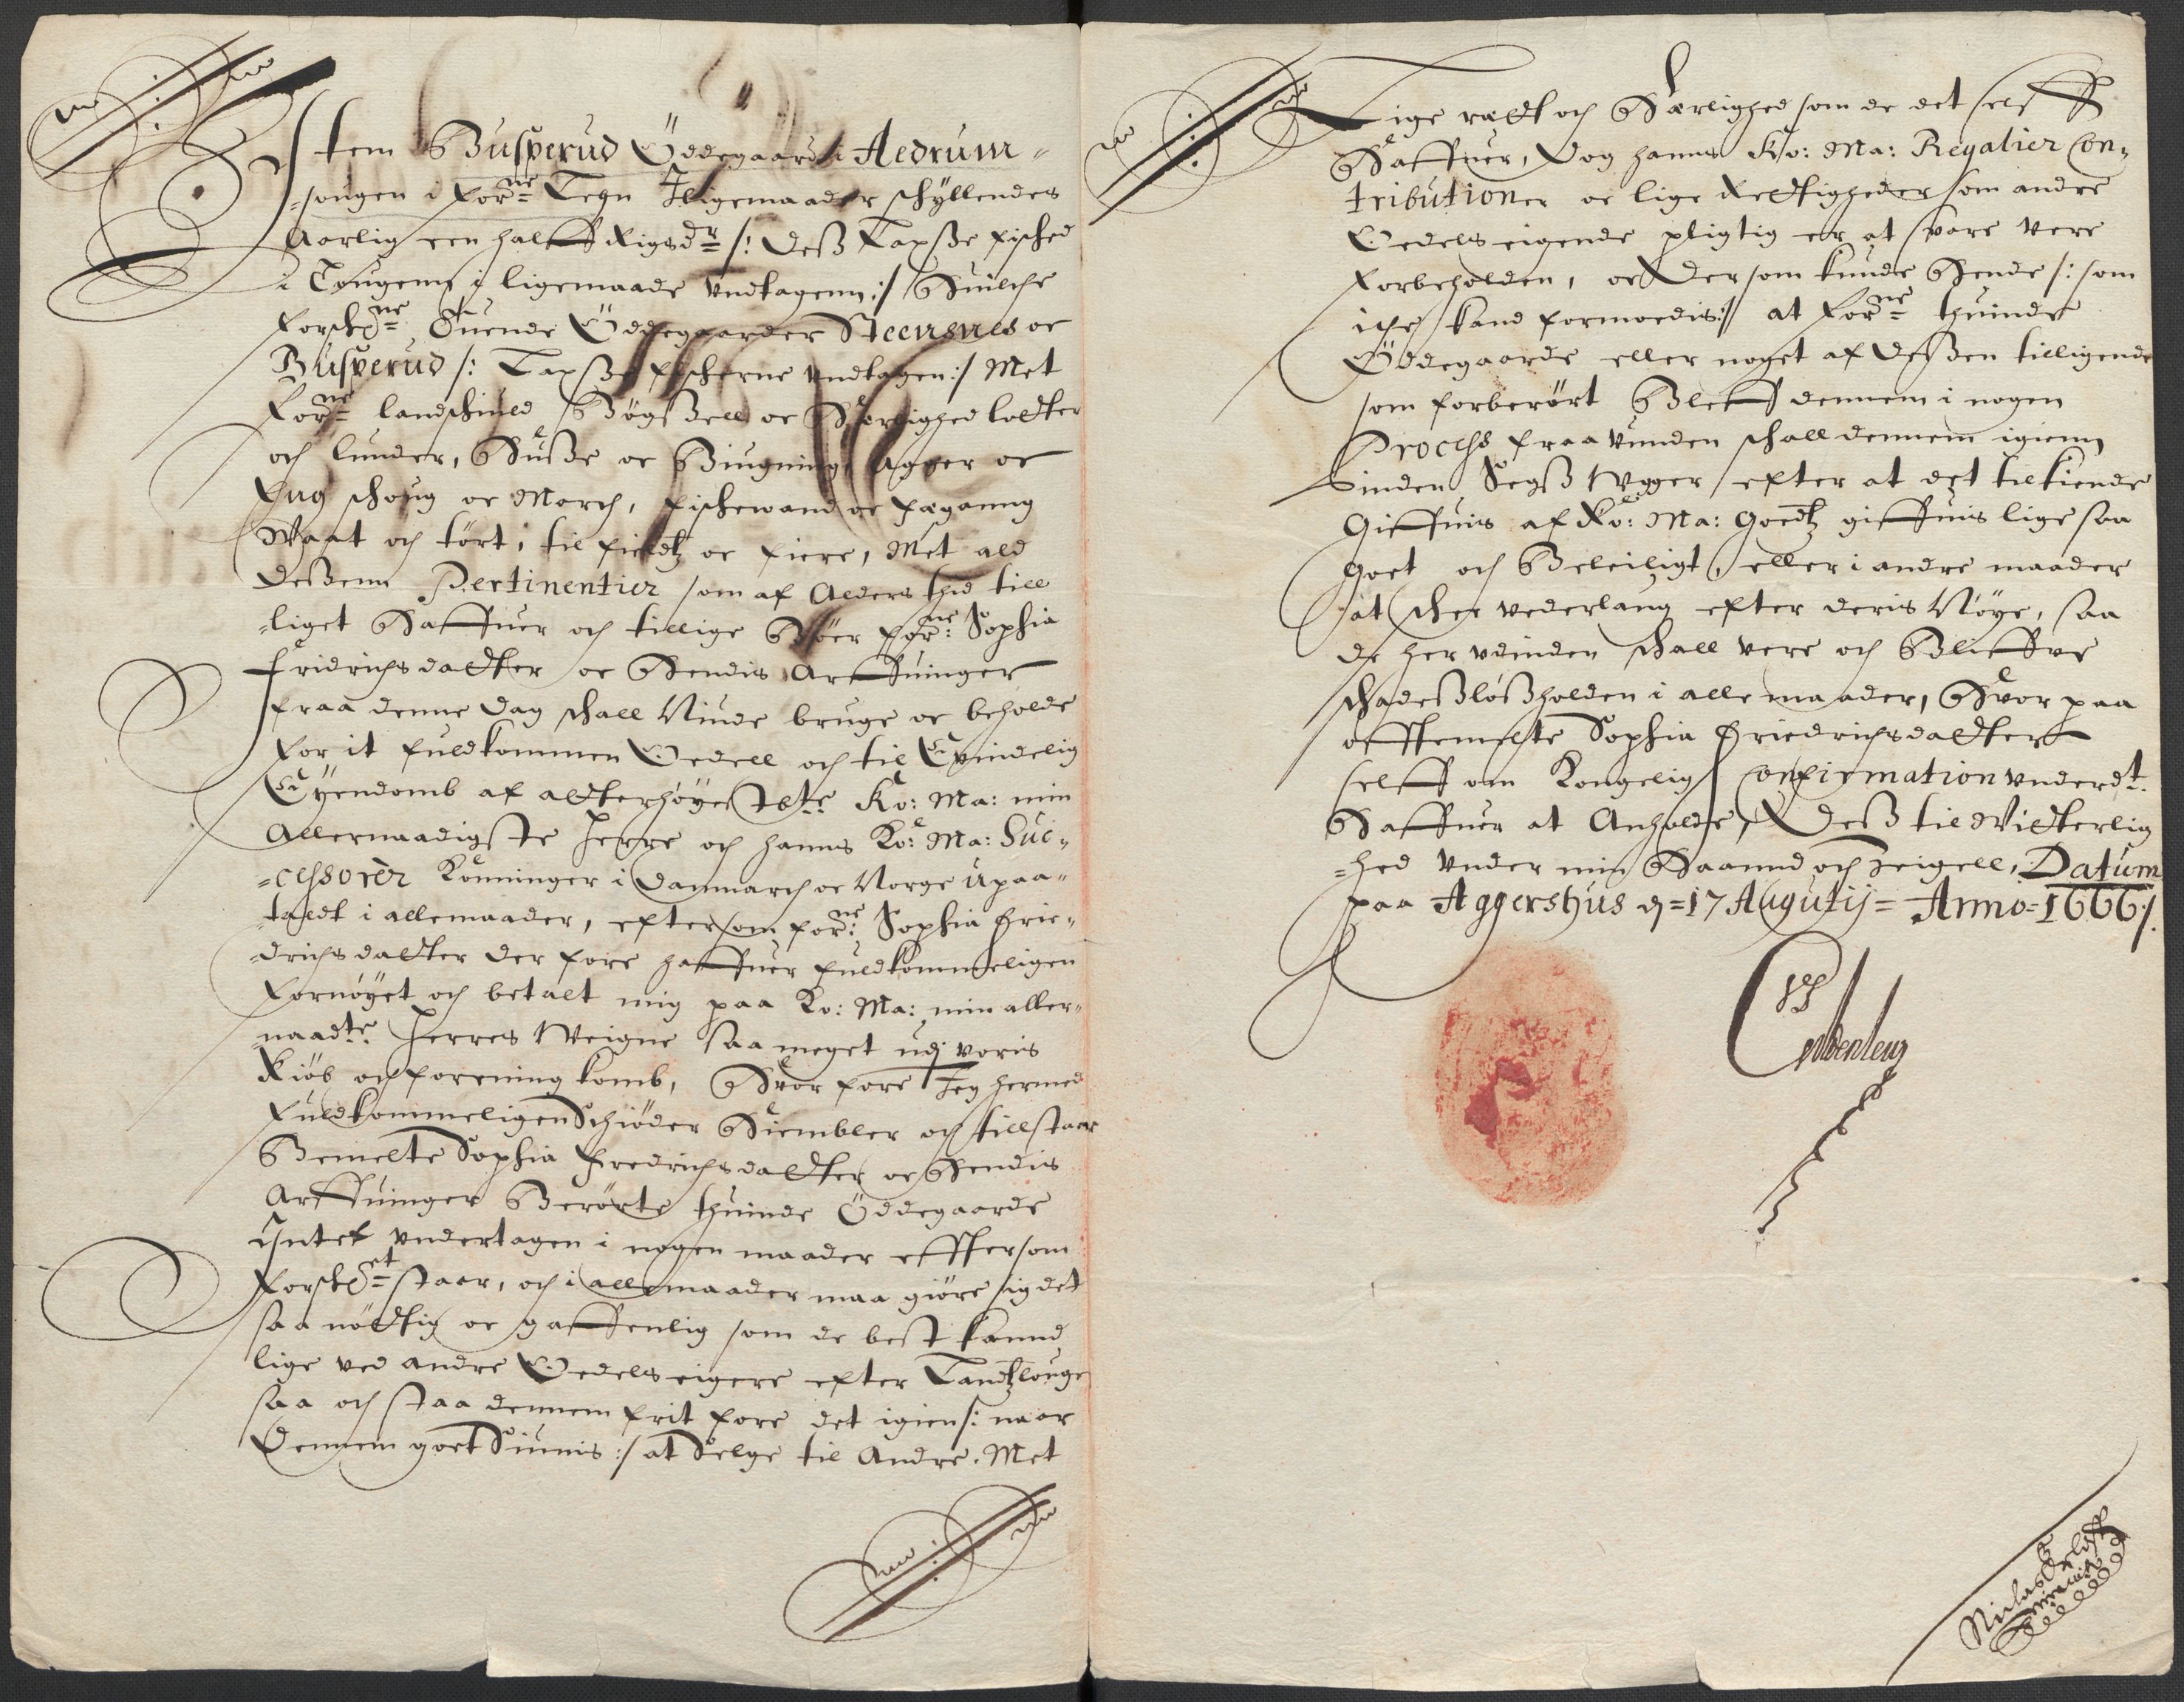 Item Busperud Öddegaard i Aedrum-
-sougen i forne Legn Iligemaader schyllendes
Aarlig een halff Rigsdr /: deß Laxße fisched
i Cougens i ligemaade Undtagenn :/ Huilche
forschne Öuende Öddegaarder Steensnes oc
Busperud /: Laxße fischerne undtagen :/ Met
forne landschuld Bögßell oc Herlighed lotter
och lunder, Huße oc Biugning Agger oc
Eng schoug oc March, fischewand oc fæganng
Waat och tört, til fieldtz oc fiere, Met ald
deßenn Pertinentier som af Alders thid till
-liget Haffuer och tillige Bör forne Sophia
Fridrichsdatter oc Hendis Arffuinger
fraa denne dag schall Niude bruge oc beholde
for it fuldkommen Oedell och til Evindelig
Eyendomb af alderhöyeste Ko: Ma: min
Allernaadigste Herre och hanns Ko: Ma: Suc-
-cessorer Konninger i Danmarch oc Norge upaa-
-taldt i allemaader, eftersom forne Sophia Frie-
-drichsdatter der fore haffuer fuldkommeligen
fornöyet och betalt mig paa Ko: Ma: min aller-
-naadte Herres Weigne saa meget udj voris
Kiöb och forening komb, Hvor fore Jeg hermed
fuldkommeligen Schiöder Hiembler och tillstaar
Bemelte Sophia Fredrichsdatter oc Hendis
Arffuinger Berörte thuinde Öddegaarde
Intet undertagen i nogen maader efftersom
forschet staar, och i alle maader maa giöre sig det
saa nöttig oc gaffenlig som de best kannd
lige ved andre Oedels eigere efter Landtzlouge
saa och staa dennem frit fore det igien /: naar
Dennem goet Siunis :/ at Selge til Andre. Met
Lige rett och Herlighed som de det selff
Haffuer, dog hanns Ko: Ma: Regalier Con-
tributioner oc lige Rettigheder som andre
Oedels eigende pligtig er at svare vere
forbeholden, oc dersom kunde Hende /: som
iche kand formoedis :/ at forne thuinde
Öddegaarde eller noget af deßen tilligende
som forberört Bleff dennem i nogen
Process fraa vunden schall dennem igienn
inden Segß Uger efter at det tilkiende
Giffuis af Ko: Ma: Goedtz giffuis lige saa
goet och Beleiligt, eller i andre maader
at schee vederlaug efter deris Nöye, saa
de her udinden schall vere och Bliffve
schadeßlößholden i alle maader, Hvor paa
offtemelte Sophia Friedrichsdatter
selff om Kongelig Confirmation underdt
Haffuer at Anholde, Deß til Vitterlig
-hed Under min Haannd och zeigell, Datum
paa Aggershus d= 17 Augutij = Anno= 1666 /.